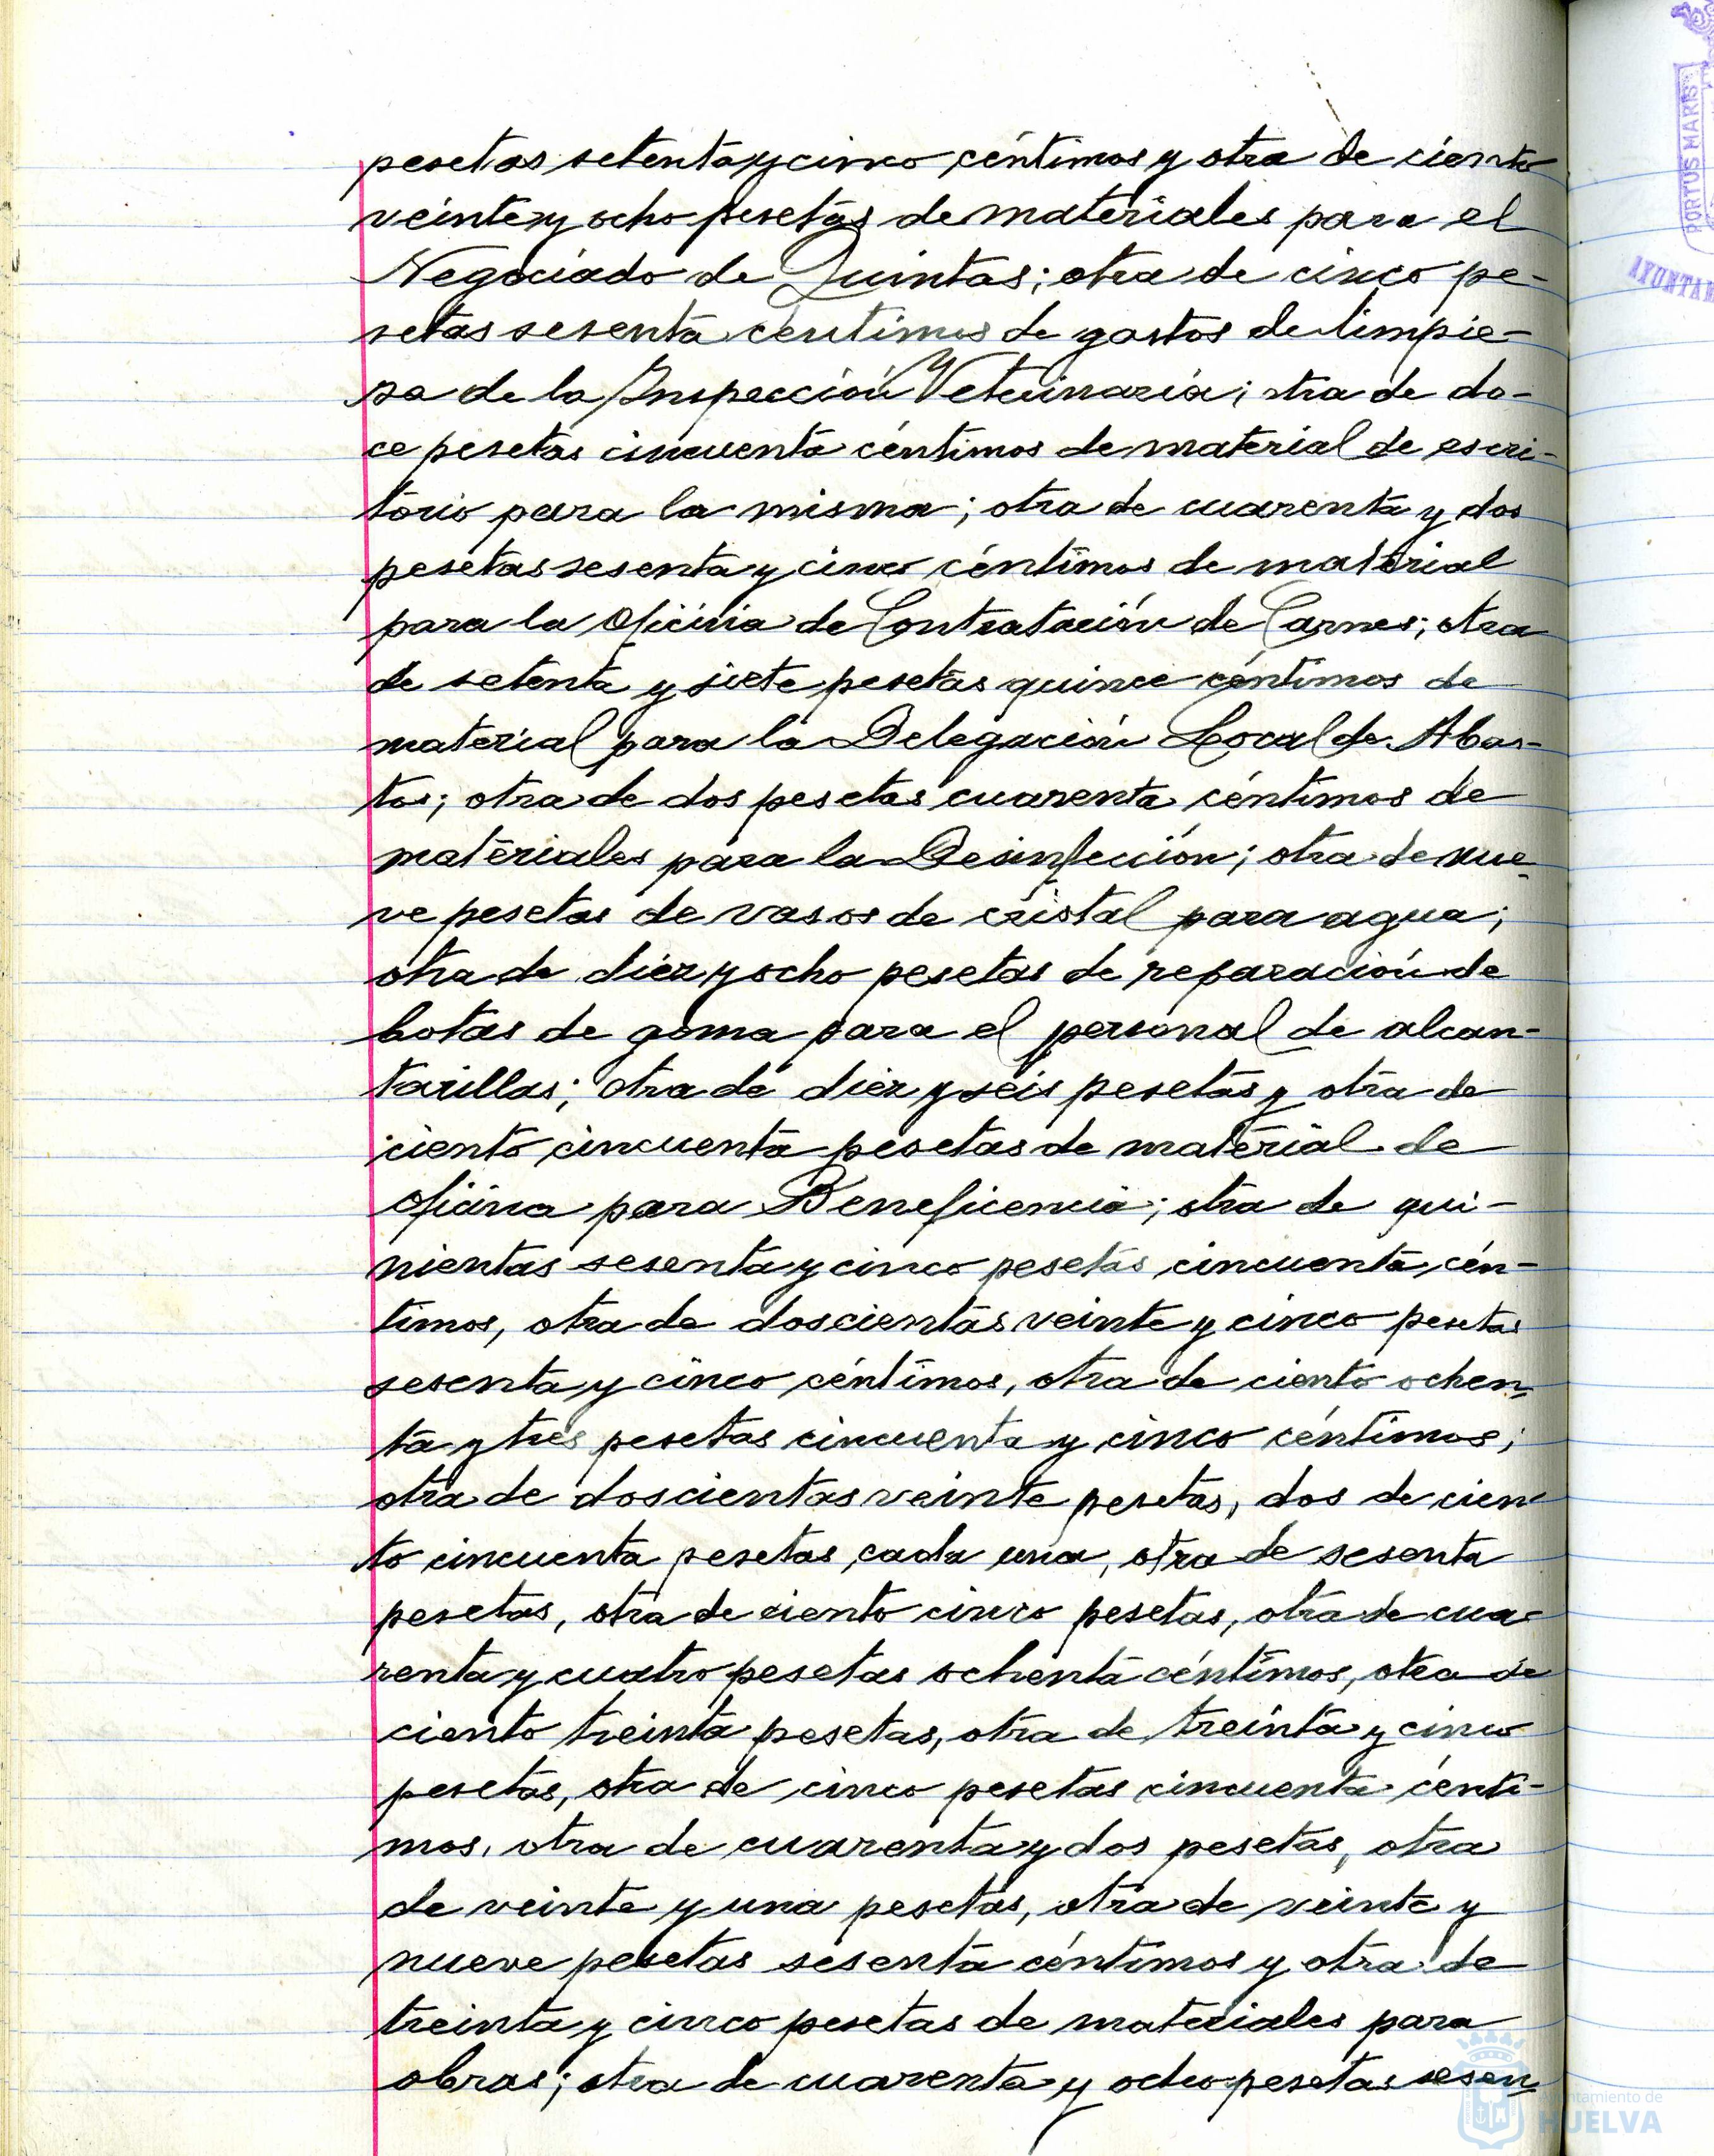 pesetas setenta y cinco céntimos y otra de ciento
veinte y ocho pesetas de materiales para el
Negociado de Quintas; otra de cinco pe-
setas sesenta céntimos de gastos de limpie-
sa de la Inspección Veterinaria; otra de do-
ce pesetas cincuenta céntimos de material de escri-
torio para la misma; otra de cuarenta y dos
pesetas sesenta y cinco céntimos de material
para la Oficina de Contratación de Carnes; otra
de setenta y siete pesetas quince céntimos de
material para la Delegación Local de Abas-
tos; otra de dos pesetas cuarenta céntimos de
materiales para la Desinfección; otra de nue-
ve pesetas de vasos de cristal para agua;
otra de diez y ocho pesetas de reparación de
botas de goma para el personal de alcan-
tarillas; otra de diez y seis pesetas y otra de
ciento cincuenta pesetas de material de
oficina para Beneficencia; otra de qui-
nientas sesenta y cinco pesetas cincuenta cén-
timos, otra de doscientas veinte y cinco pesetas
sesenta y cinco céntimos, otra de ciento ochen-
ta y tres pesetas cincuenta y cinco céntimos;
otra de doscientas veinte pesetas, dos de cien-
to cincuenta pesetas cada una, otra de sesenta
pesetas, otra de ciento cinco pesetas, otra de cua-
renta y cuatro pesetas ochenta céntimos, otra de
ciento treinta pesetas, otra de treinta y cinco
pesetas, otra de cinco pesetas cincuenta cénti-
mos, otra de cuarenta y dos pesetas, otra
de veinte y una pesetas, otra de veinte y
nueve pesetas sesenta céntimos y otra de
treinta y cinco pesetas de materiales para
obras; otra de cuarenta y ocho pesetas sesen-
PORTUS MARIS
AYUNTAM
Ayuntamiento de
HUELVA